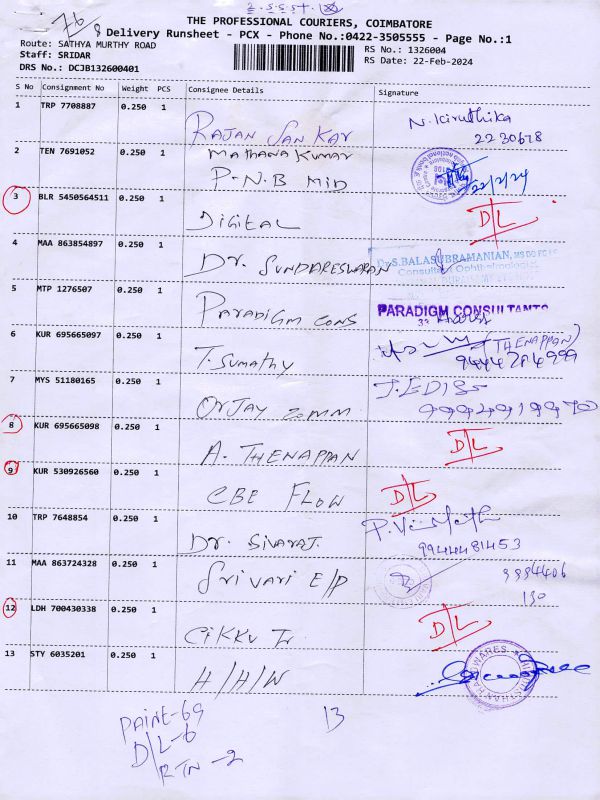 76
8
THE PROFESSIONAL COURIERS, COIMBATORE
Delivery Runsheet - PCX - Phone No.:0422-3505555 - Page No.:1
Route: SATHYA MURTHY ROAD
RS No.: 1326004
Staff: SRIDAR
RS Date: 22-Feb-2024
DRS No.: DCJB132600401
S No Consignment No Weight PCS Consignee Details Signature
1 TRP 7708887 0.250 1 RAJAN SANKAR N. Kiruthika
2230678
2 TEN 7691052 0.250 1 Mathana Kumar
P.N.B MID 22/2/24
3 BLR 5450564511 0.250 1 DIGITAL D/L
4 MAA 863854897 0.250 1 Dr. SUNDARESWARAN Dr.S.BALASUBRAMANIAN, MS DO
Consultant Ophthalmologist
5 MTP 1276507 0.250 1 PARADIGM CONS PARADIGM CONSULTANTS
6 KUR 695665097 0.250 1 T. Sumathy (THENAPPAN)
9444284999
7 MYS 51180165 0.250 1 OrJAY comm
9994919970
8 KUR 695665098 0.250 1 A. THENAPPAN D/L
9 KUR 530926560 0.250 1 CBE FLOW D/L
10 TRP 7648854 0.250 1 Dr. SIVARAJ.
9944481453
11 MAA 863724328 0.250 1 Srivari E/P 9994406
130
12 LDH 700430338 0.250 1 CIKKU D/L
13 STY 6035201 0.250 1 H/H/W
PAINT-69
D/L-6
RTN-2
13